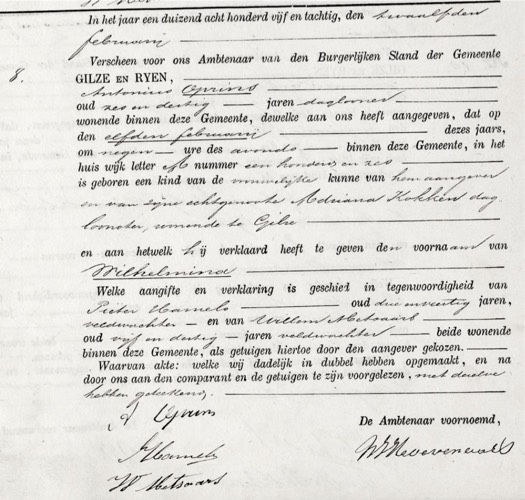 In het jaar een duizend acht honderd vijf en tachtig, den twaalfden
februarij
Verscheen voor ons Ambtenaar van den Burgerlijken Stand der Gemeente
8. GILZE EN RYEN,
Antonius Oprins
oud zes en dertig jaren daglooner
wonende binnen deze Gemeente, dewelke aan ons heeft aangegeven, dat op
den elfden februarij dezes jaars,
om negen ure des avonds binnen deze Gemeente, in het
huis wijk letter nummer een honderd en zes
is geboren een kind van de vrouwelijke kunne van hem aangever
en van zijne echtgenoote Adriana Kokken dag
loonster, wonende te Gilze
en aan hetwelk hij verklaard heeft te geven den voornaam van
Wilhelmina
Welke aangifte en verklaring is geschied in tegenwoordigheid van
Pieter Hamels oud drie en veertig jaren,
veldwachter en van Willem Metsaars
oud vijf en dertig jaren veldwachter beide wonende
binnen deze Gemeente, als getuigen hiertoe door den aangever gekozen.
Waarvan akte: welke wij dadelijk in dubbel hebben opgemaakt, en na
door ons aan den comparant en de getuigen te zijn voorgelezen, met dezelve
hebben geteekend.
A Oprins
De Ambtenaar voornoemd,
Hamels
W Metsaars